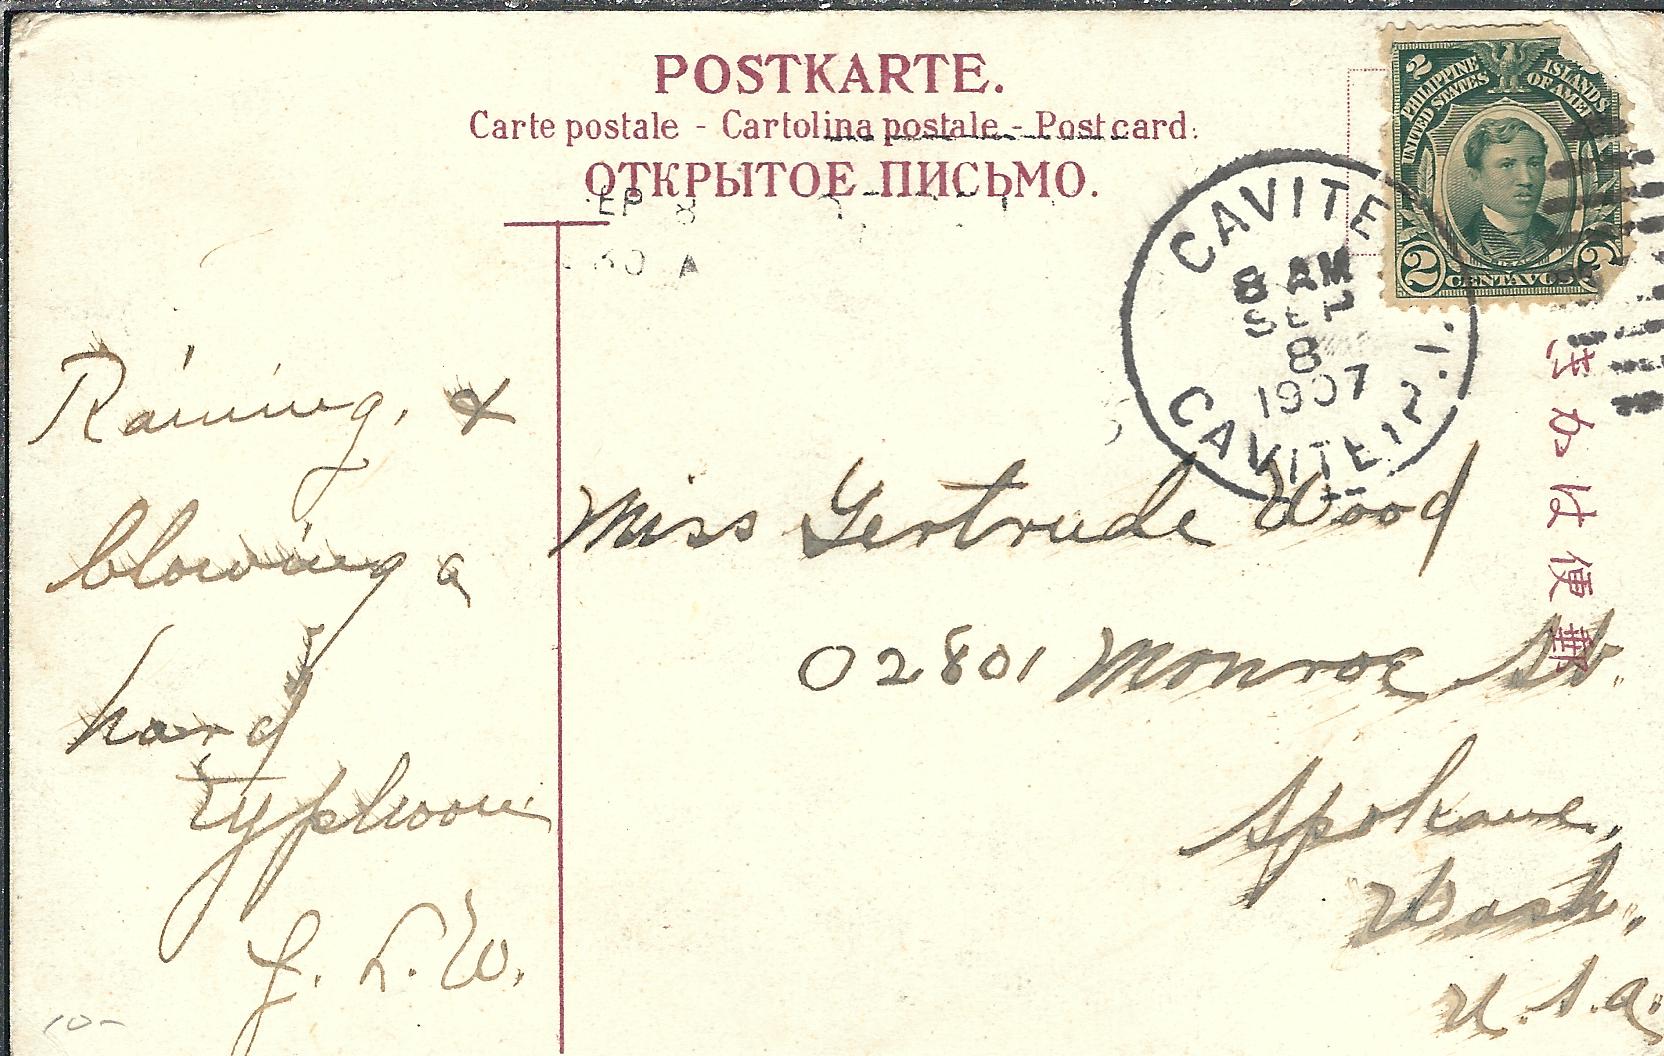 POSTKARTE.
Carte postale - Cartolina postale - Postcard.
ОТКРЫТОЕ ПИСЬМО.
2
PHILIPPINE ISLANDS
UNITED STATES OF AMERICA
2 CENTAVOS 2
CAVITE
8 AM
SEP
8
1907
CAVITE, P.I.
EP 8
30 A
きかは便郵
Raining, &
blowing a
hard
Typhoon
J. L. W.
Miss Gertrude Wood
02801 Monroe St.
Spokane,
Wash.,
U.S.A.
10-